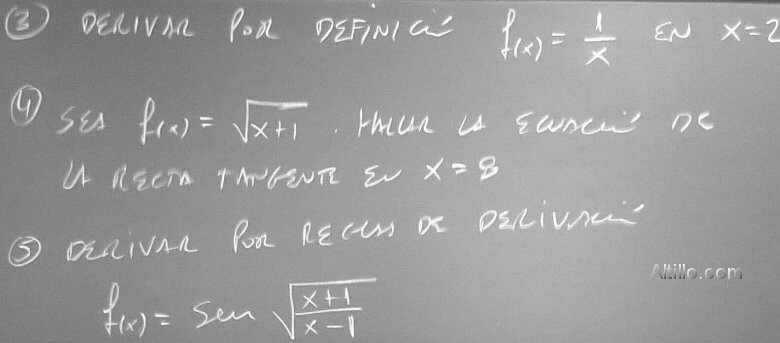 ③ DERIVAR POR DEFINICIÓN f(x) = 1/x EN X=2
④ SEA f(x) = √(x+1) . HALLAR LA ECUACIÓN DE
LA RECTA TANGENTE EN X=8
⑤ DERIVAR POR REGLAS DE DERIVACIÓN
Altillo.com
f(x) = sen √((x+1)/(x-1))